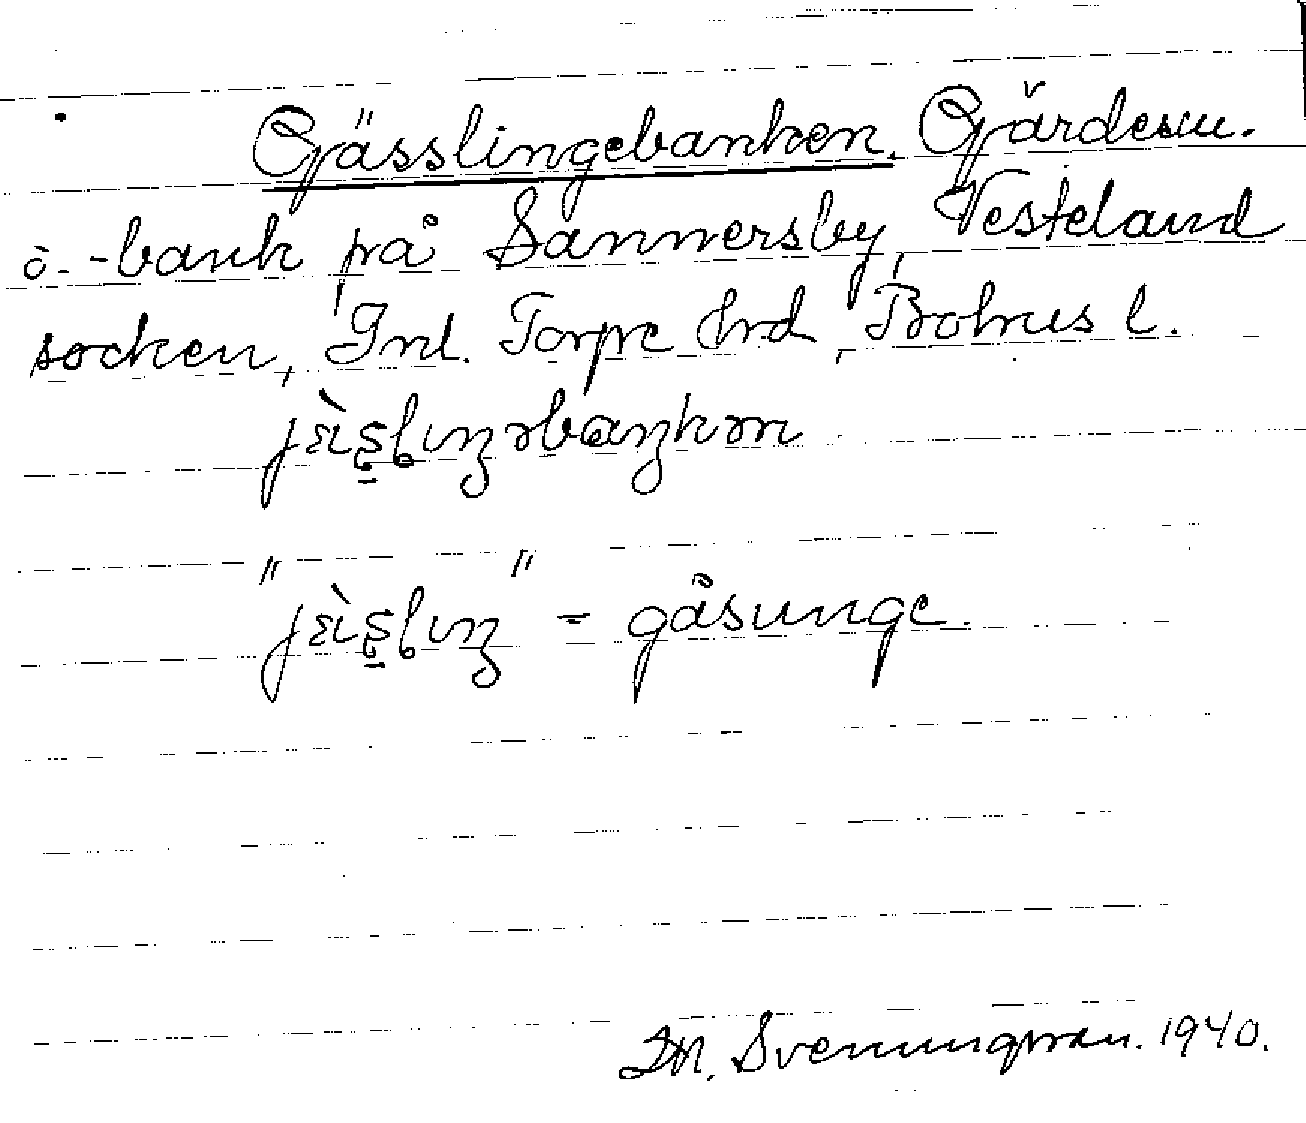 Gässlingebanken. Gärdesn.
o. -bank på Sannersby, Vesteland
socken, Inl. Torpe hrd, Bohus l.
"jèı̀s̱lıŋ" = gåsunge.
M. Svenungsson. 1940.